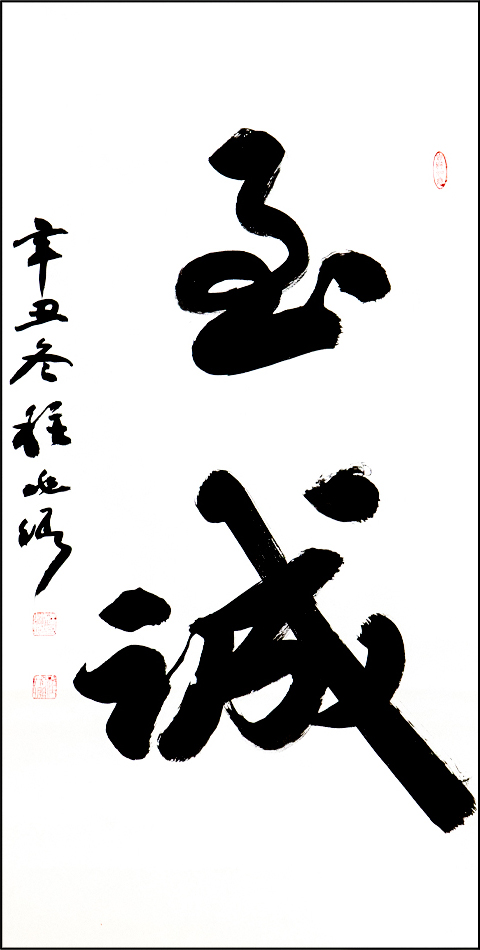 至
诚
辛丑冬程兆